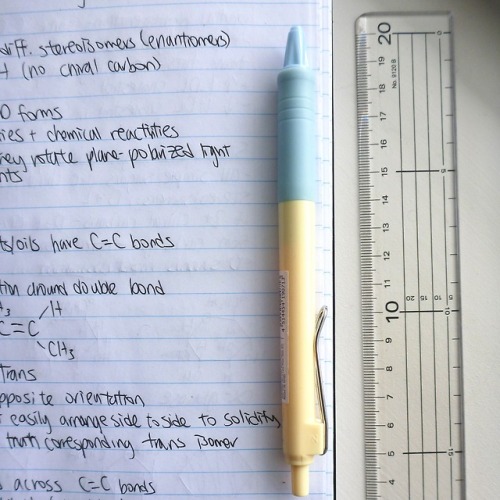 diff. stereoisomers (enantiomers)
(no chiral carbon)
forms
ies + chemical reactivities
rotate plane-polarized light
nts
ts/oils have C=C bonds
tion around double bond
H
C=C
CH₃
trans
opposite orientation
easily arrange side to side to solidify
truth corresponding trans isomer
across C=C bonds
20
19
18
17
16
15
14
13
12
11
10
9
8
7
6
5
4
No. 8120 B
0
5
10
15
20
15